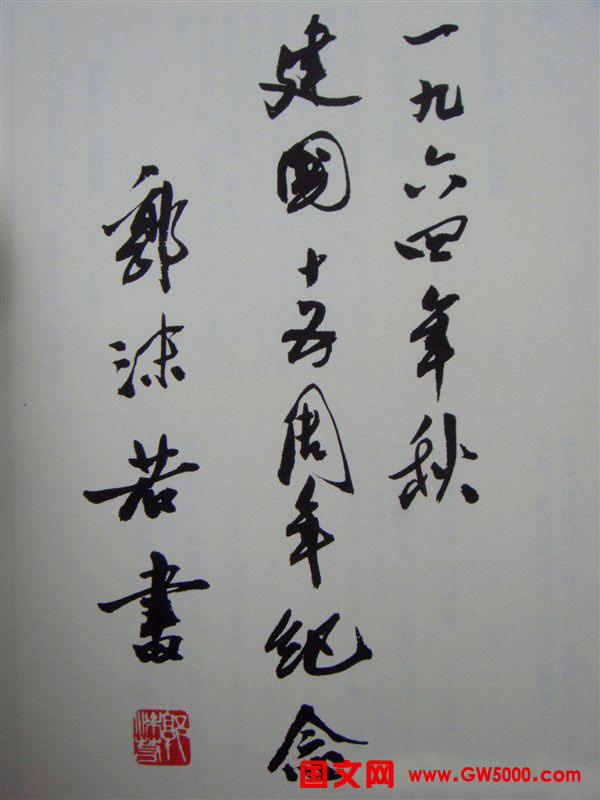 一九六四年秋
建國十五周年纪念
郭沫若書
郭沫若
国文网 www.GW5000.com